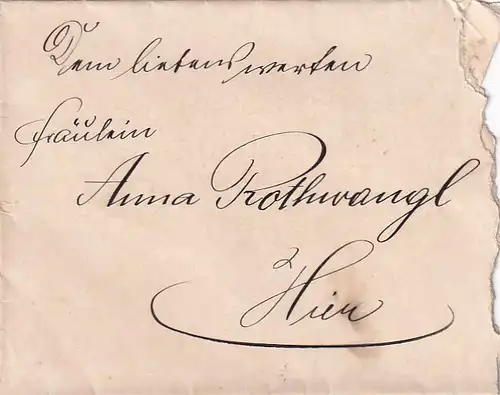 Dem liebenswerten
Fräulein
Anna Rothwangl
Hier